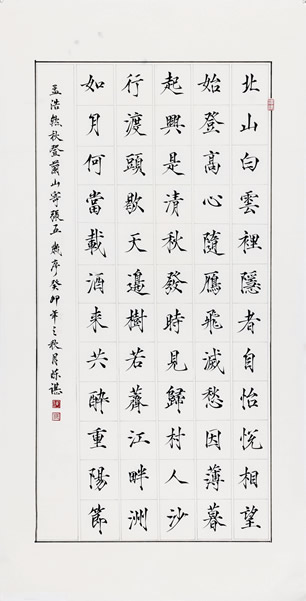 北山白雲裡隱者自怡悅相望
始登高心隨鴈飛滅愁因薄暮
起興是清秋發時見歸村人沙
行渡頭歇天邊樹若薺江畔洲
如月何當載酒来共醉重陽節
孟浩然秋登蘭山寄張五歲序癸卯年之秋月